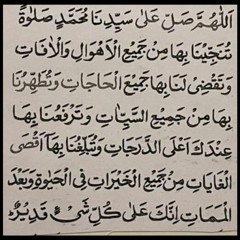 اَللّٰهُمَّ صَلِّ عَلٰى سَيِّدِنَا مُحَمَّدٍ صَلٰوةً
تُنَجِّيْنَا بِهَا مِنْ جَمِيْعِ الْاَهْوَالِ وَالْاٰفَاتِ
وَتَقْضِىْ لَنَا بِهَا جَمِيْعَ الْحَاجَاتِ وَتُطَهِّرُنَا
بِهَا مِنْ جَمِيْعِ السَّيِّاٰتِ وَتَرْفَعُنَا بِهَا
عِنْدَكَ اَعْلَى الدَّرَجَاتِ وَتُبَلِّغُنَا بِهَا اَقْصَى
الْغَايَاتِ مِنْ جَمِيْعِ الْخَيْرَاتِ فِى الْحَيٰوةِ وَبَعْدَ
الْمَمَاتِ اِنَّكَ عَلٰى كُلِّ شَىْءٍ قَدِيْرٌ